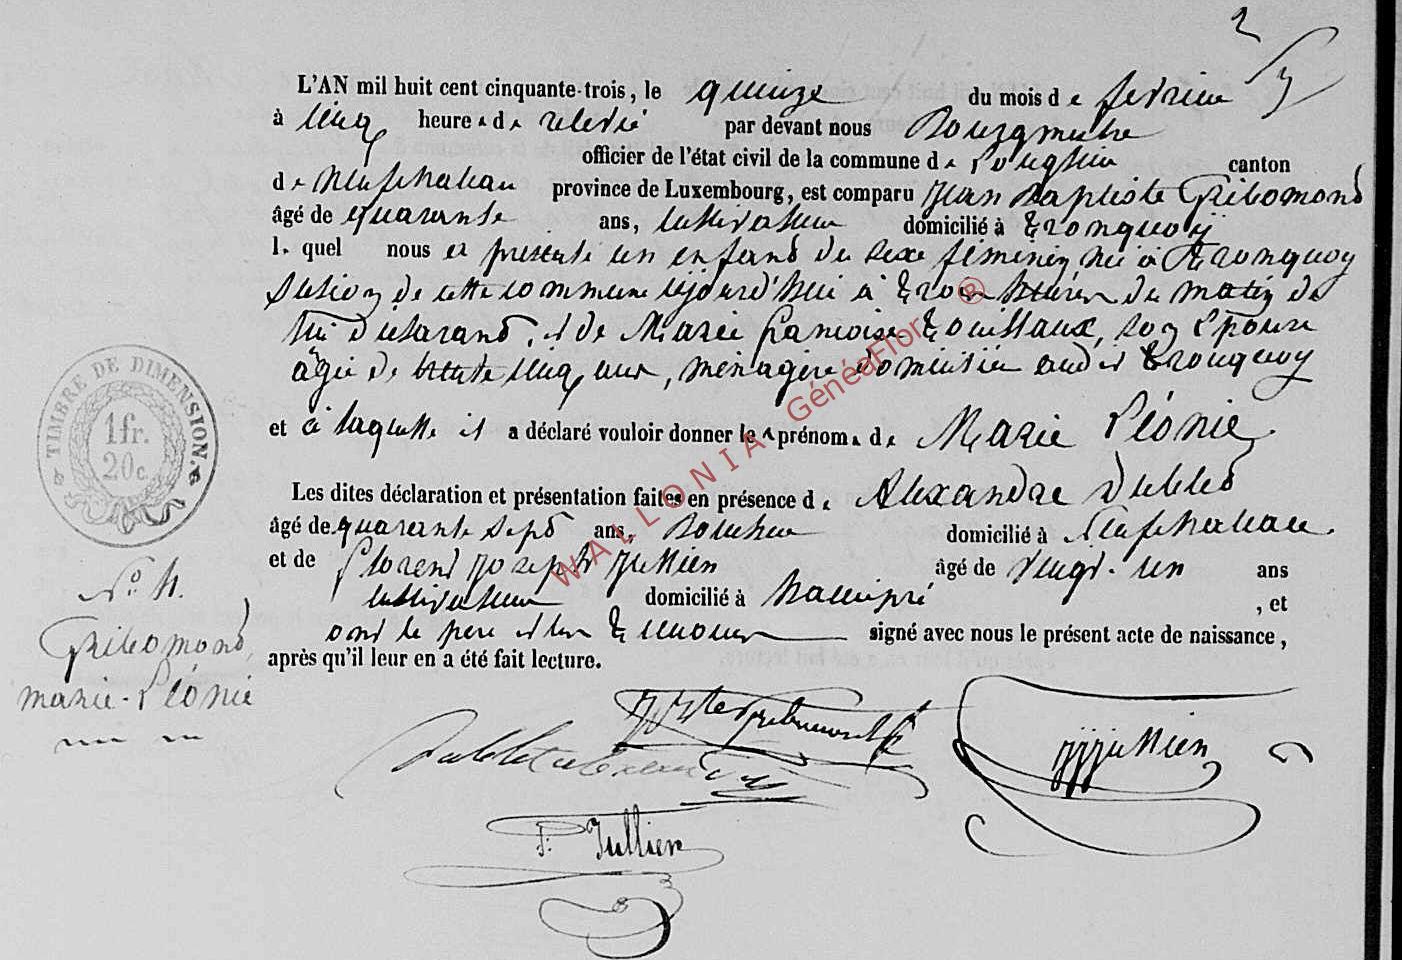 2
L'AN mil huit cent cinquante-trois, le quinze du mois de fevrier
à cinq heures de relevé par devant nous Bourgmestre
officier de l'état civil de la commune de Longlier canton
de Neufchateau province de Luxembourg, est comparu Jean Baptiste Gribomond
âgé de quarante ans, cultivateur domicilié à Tronquoy
lequel nous a présenté un enfand du sexe féminin né à Tronquoy
section de cette commune cejourd'hui à trois heures du matin de
lui déclarand, et de Marie françoise Thouillaux, son épouse
agée de trente cinq ans, ménagère domiciliée audit Tronquoy
et à laquelle il a déclaré vouloir donner les prénoms de Marie Léonie,
Les dites déclaration et présentation faites en présence de Alexandre Dubled
âgé de quarante sept ans, Boucher domicilié à Neufchateau
et de Florend Joseph Jullien âgé de vingt-un ans
cultivateur domicilié à hamipré , et
ond le pere et les temoins signé avec nous le présent acte de naissance,
après qu'il leur en a été fait lecture.
TIMBRE DE DIMENSION.
1fr.
20c.
No. 4.
Gribomond,
marie-Léonie
jjjullien
F. Jullien
WALLONIA GénéaFlor ®